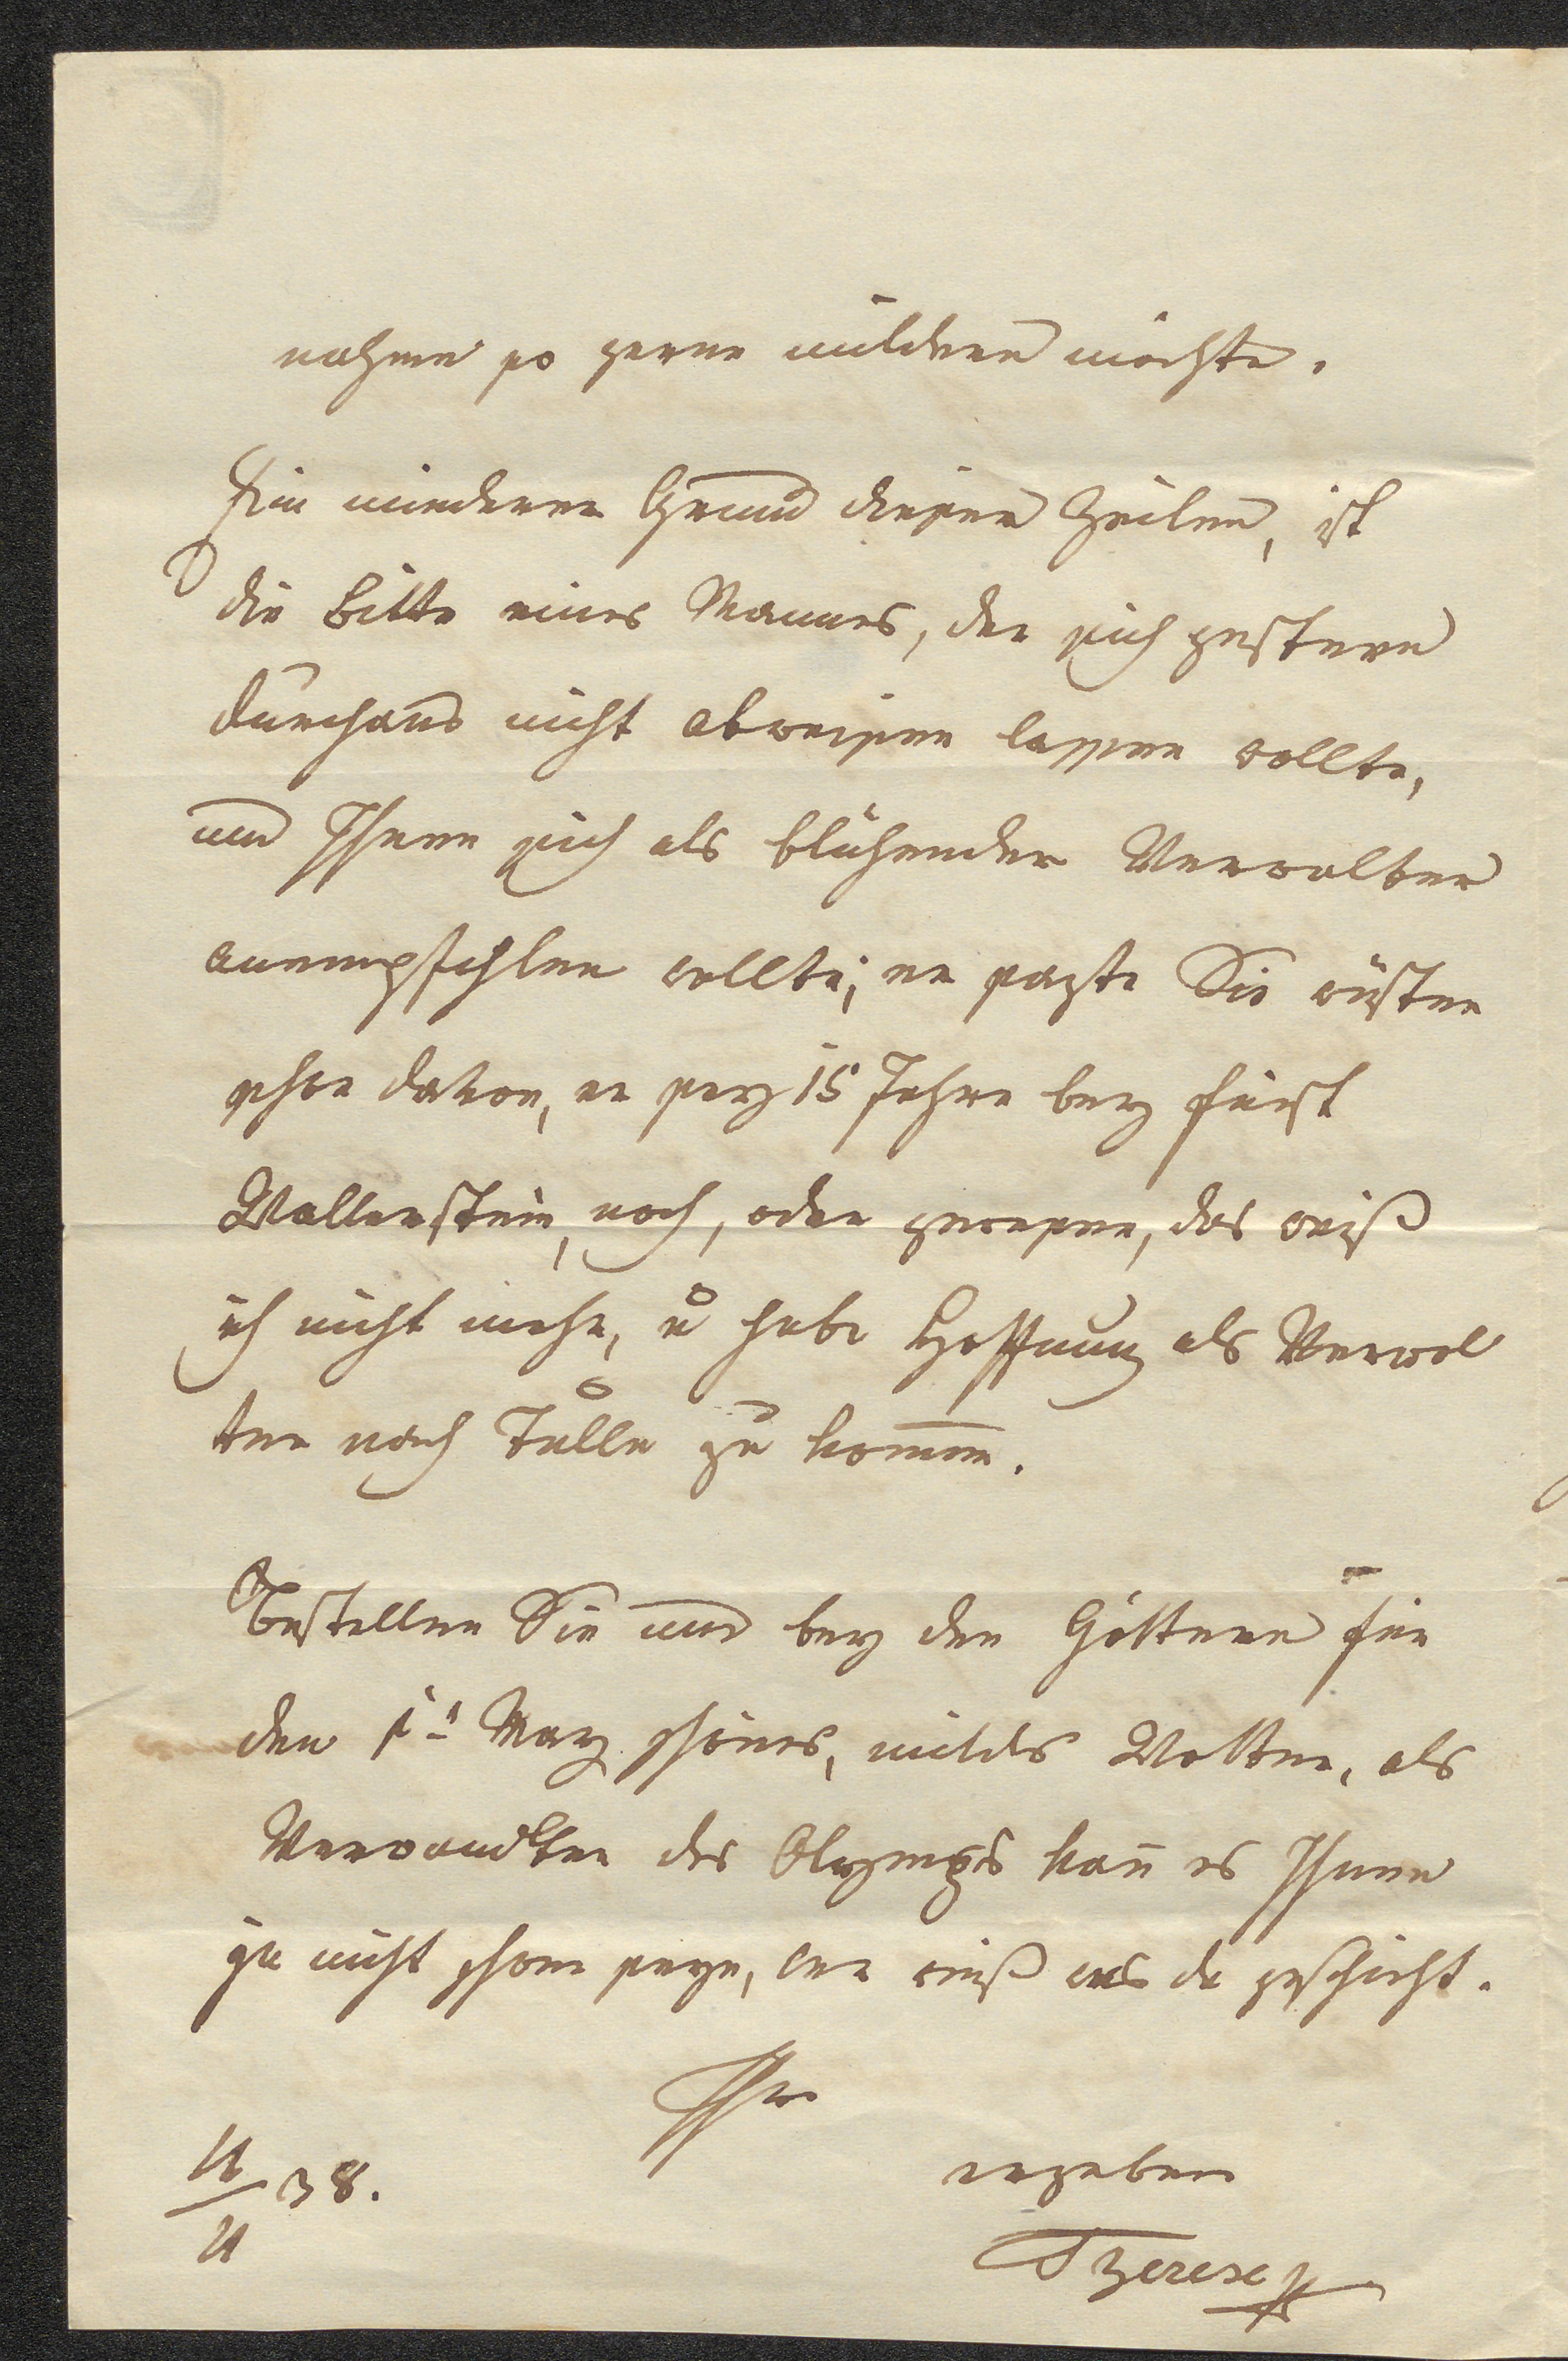 nahme so gerne mildern möchte.
Ein minderer Grund dieser Zeilen, ist
die Bitte eines Mannes, der sich gestern
durchaus nicht abweisen lassen wollte,
und Ihnen sich als blühender Verwalter
anempfehlen wollte; er sagte Sie wüsten
schon davon, er sey 15 Jahre bey Fürst
Wallerstein, noch, oder gewesen, das weiß
ich nicht mehr, u habe Hoffnung als Verwal
ter nach Tulle zu kommen.
Bestellen Sie uns bey den Göttern für
den 1t März schönes, mildes Wetter, als
Verwandter des Olymps kann es Ihnen
ja nicht schwer seyn, wer weiß was da geschieht.
Ihre
ergeben
Therese
38.